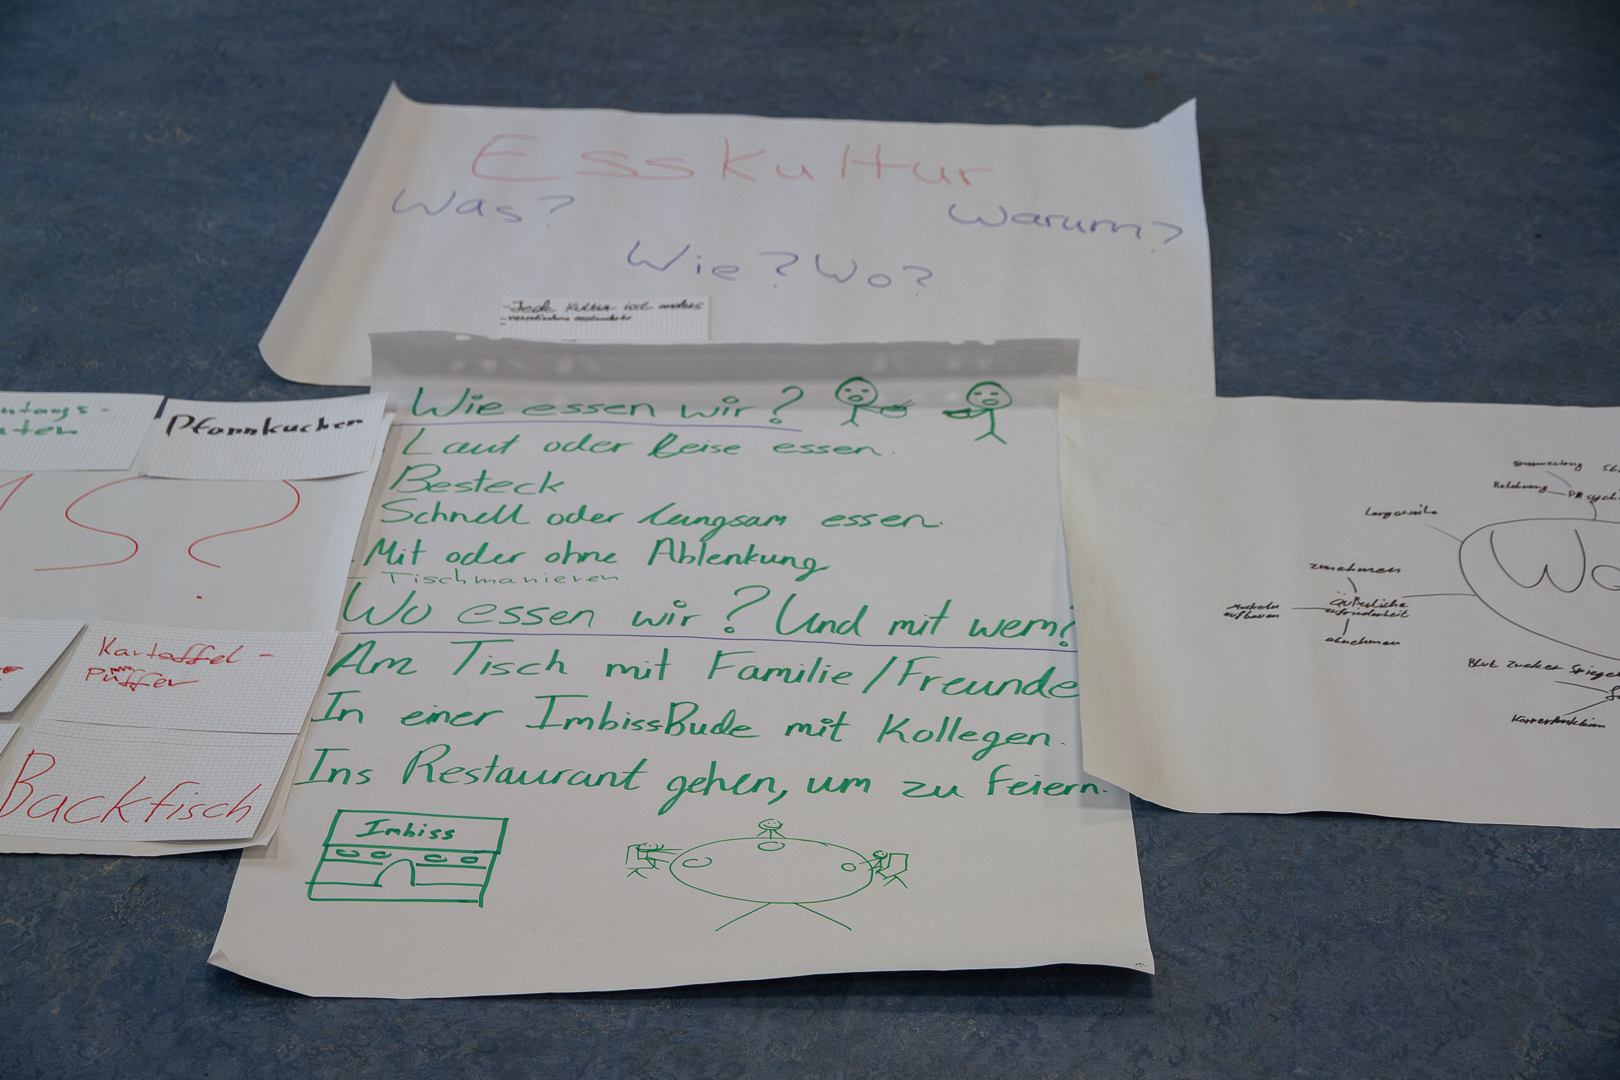 Esskultur
Was?
Warum?
Wie? Wo?
- Jede Kultur isst anders
Wie essen wir?
Laut oder leise essen.
Besteck
Schnell oder langsam essen.
Mit oder ohne Ablenkung
- Tischmanieren
Wo essen wir? Und mit wem?
Am Tisch mit Familie/Freunde
In einer ImbissBude mit Kollegen.
Ins Restaurant gehen, um zu feiern.
Imbiss
ntags-
aten
Pfannkuchen
S?
Kartoffel-
puffer
Backfisch
Psych
Langeweile
zunehmen
Muskeln
aufbauen
äußerliche
zufriedenheit
abnehmen
Wa
Blut zucker Spiegel